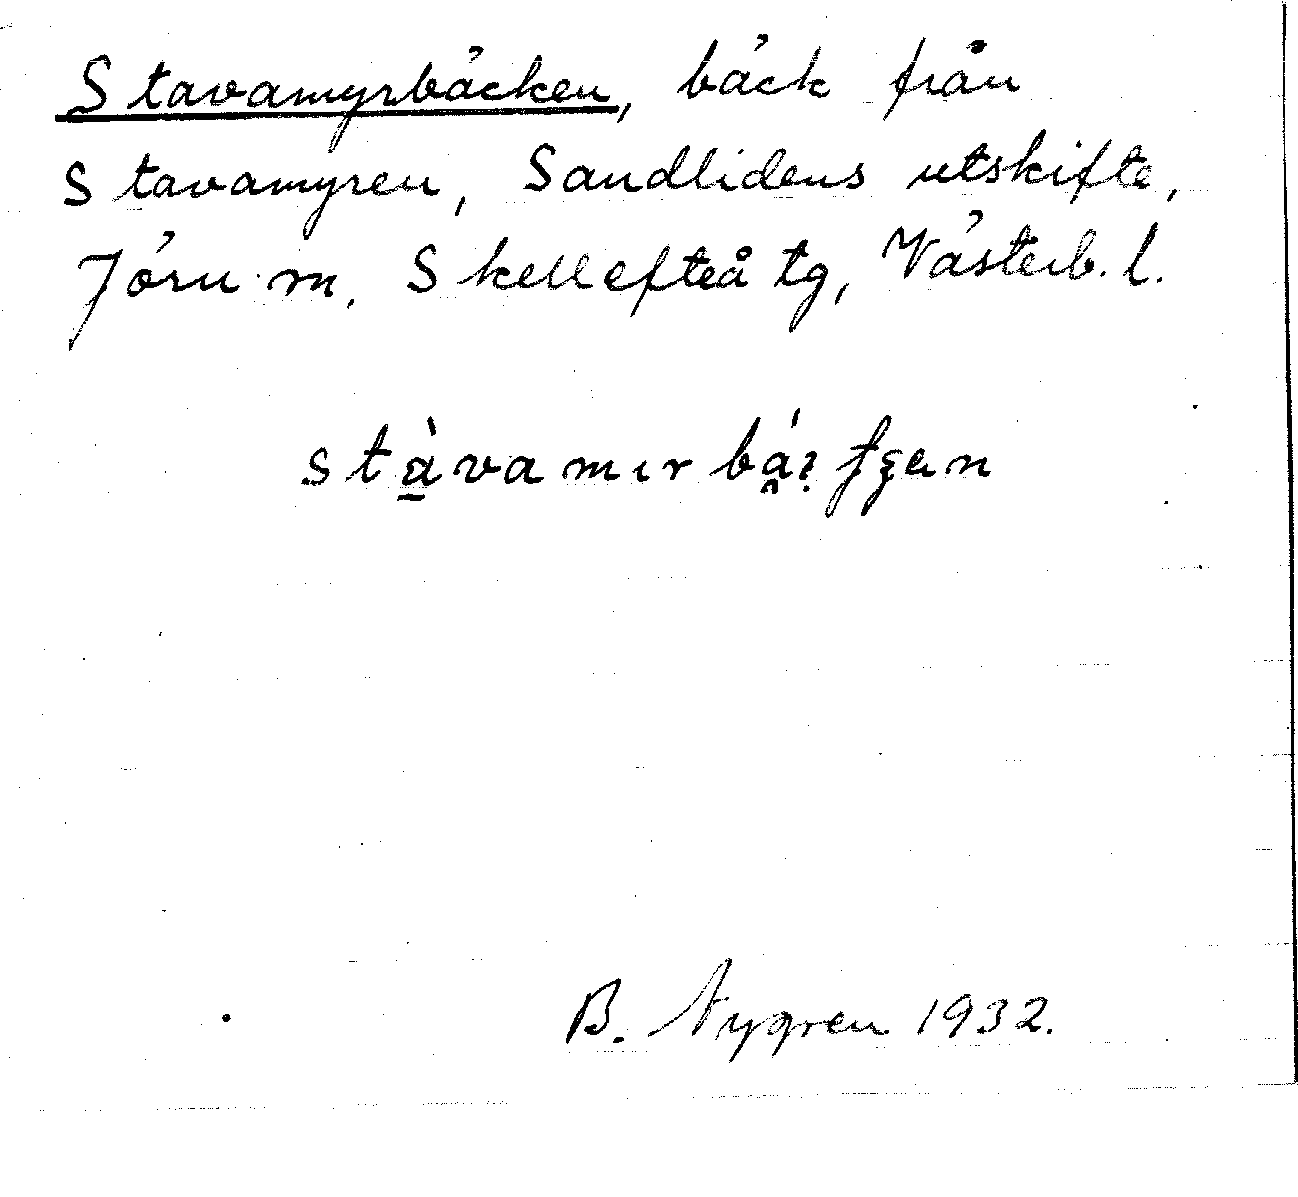 Stavamyrbäcken, bäck från
Stavamyren, Sandlidens utskifte,
Jörn m. Skellefteå tg, Västerb. l.
B. Nygren 1932.